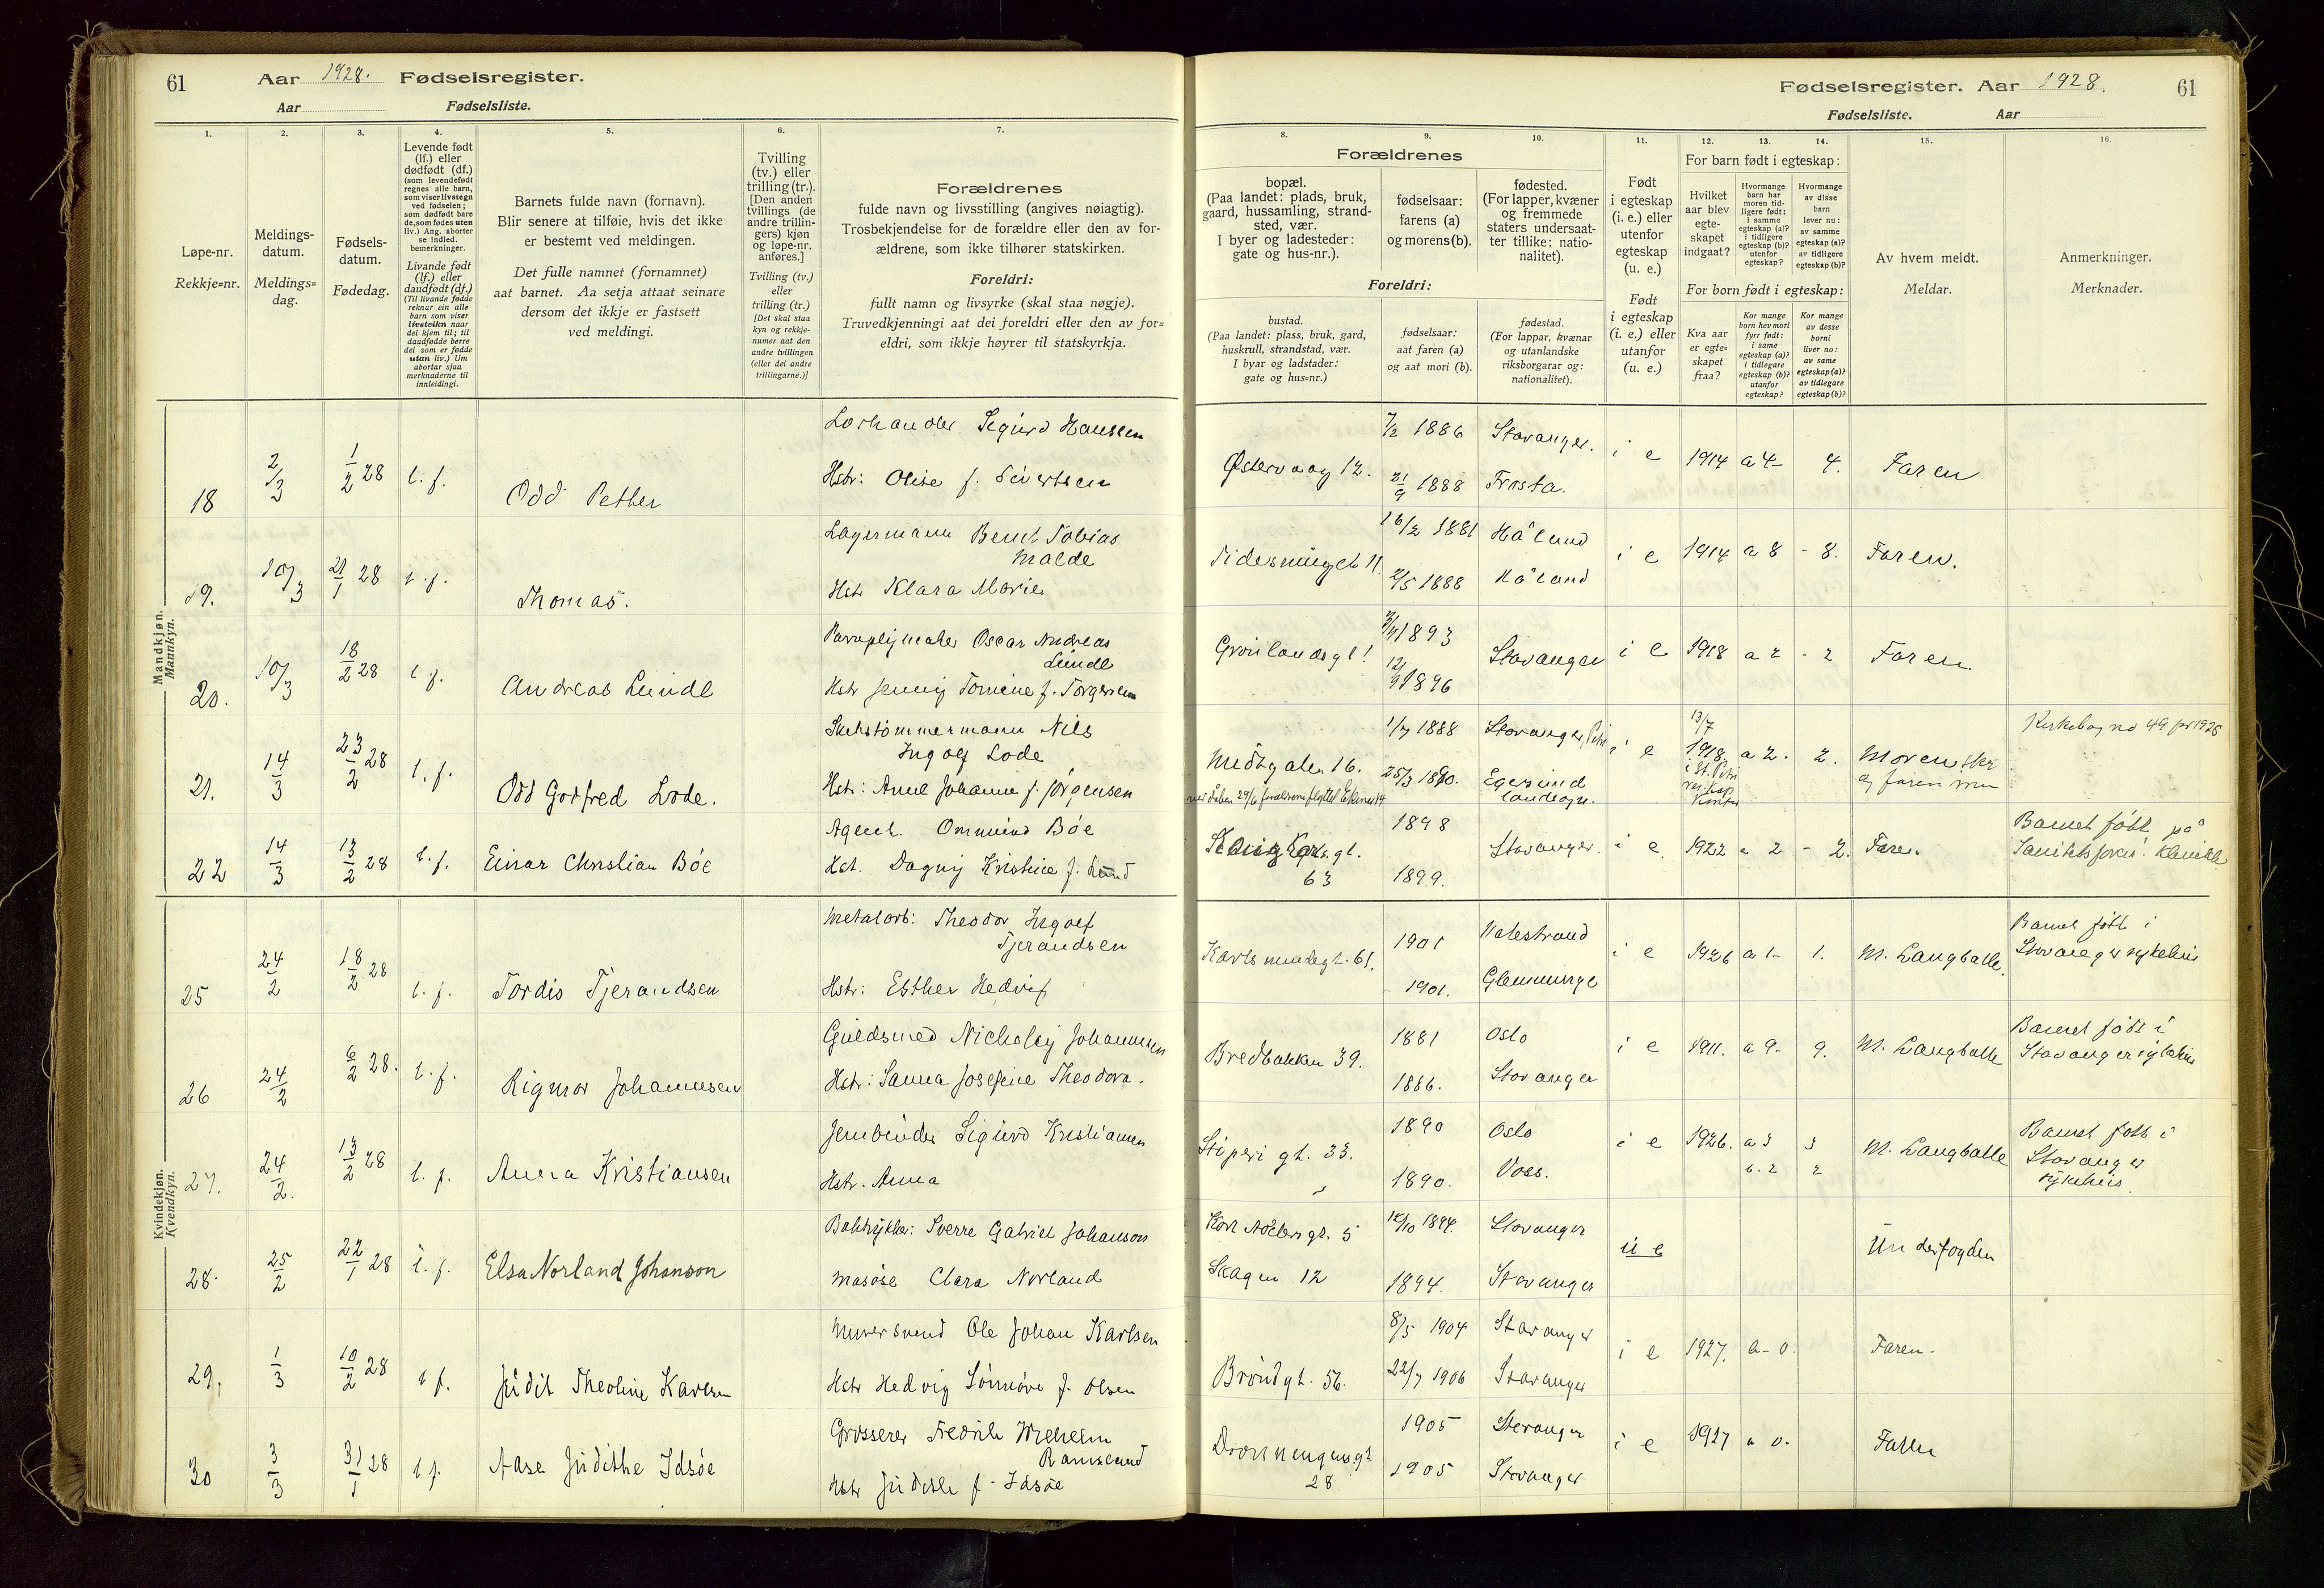 61 Aar 1928. Fødselsregister.
Aar Fødselsliste.
Fødselsregister. Aar 1928. 61
Fødselsliste. Aar
1. 2. 3. 4. 5. 6. 7.
8. 9. 10. 11. 12. 13. 14. 15. 16.
Løpe-nr.
Rekkje=nr.
Meldings-
datum.
Meldings=
dag.
Fødsels-
datum.
Fødedag.
Levende født
(lf.) eller
dødfødt (df.)
(som levendefødt
regnes alle barn,
som viser livstegn
ved fødselen;
som dødfødt bare
de, som fødes uten
liv.) Ang. aborter
se indled.
bemerkninger.
Livande født
(lf.) eller
daudfødt (df.)
(Til livande fødde
reknar ein alle
barn som viser
livsteikn naar
dei kjem til; til
daudfødde berre
dei som er fødde
utan liv.) Um
abortar sjaa
merknaderne til
innleidingi.
Barnets fulde navn (fornavn).
Blir senere at tilføie, hvis det ikke
er bestemt ved meldingen.
Det fulle namnet (fornamnet)
aat barnet. Aa setja attaat seinare
dersom det ikkje er fastsett
ved meldingi.
Tvilling
(tv.) eller
trilling (tr.).
[Den anden
tvillings (de
andre trillin-
gers) kjøn
og løpe-nr.
anføres.]
Tvilling (tv.)
eller
trilling (tr.)
[Det skal staa
kyn og rekkje-
numer aat den
andre tvillingen
(eller dei andre
trillingarne.)]
Forældrenes
fulde navn og livsstilling (angives nøiagtig).
Trosbekjendelse for de forældre eller den av for-
ældrene, som ikke tilhører statskirken.
Foreldri:
fullt namn og livsyrke (skal staa nøgje).
Truvedkjenningi aat dei foreldri eller den av for=
eldri, som ikkje høyrer til statskyrkja.
Forældrenes
bopæl.
(Paa landet: plads, bruk,
gaard, hussamling, strand-
sted, vær.
I byer og ladesteder:
gate og hus-nr.).
fødselsaar:
farens (a)
og morens (b).
fødested.
(For lapper, kvæner
og fremmede
staters undersaat-
ter tillike: natio-
nalitet).
Foreldri:
bustad.
(Paa landet: plass, bruk, gard,
huskrull, strandstad, vær.
I byar og ladstader:
gate og hus-nr.)
fødselsaar:
aat faren (a)
og aat mori (b).
fødestad.
(For lappar, kvænar
og utanlandske
riksborgarar og:
nationalitet).
Født
i egteskap
(i. e.) eller
utenfor
egteskap
(u. e.)
Født
i egteskap
(i. e.) eller
utanfor
(u. e.)
For barn født i egteskap:
Hvilket
aar blev
egte-
skapet
indgaat?
Hvormange
barn har
moren tid-
ligere født:
i samme
egteskap (a)?
i tidligere
egteskap (b)?
utenfor
egteskap?
Hvormange
av disse
barn
lever nu:
av samme
egteskap (a)?
av tidligere
egteskap (b)?
For born født i egteskap:
Kva aar
er egte=
skapet
fraa?
Kor mange
born hev mori
fyrr født:
i same
egteskap (a)?
i tidlegare
egteskap (b)?
utanfor
egteskap?
Kor mange
av desse
borni
liver no:
av same
egteskap (a)?
av tidlegare
egteskap (b)?
Av hvem meldt.
Meldar.
Anmerkninger.
Merknader.
Mandkjøn.
Mannkyn.
18 2/3 1/2 28 l. f. Odd Petter
Sigurd Hanssen
Hstr: Olise f. Sivertsen
Østervaag 12. 7/2 1886 Stavanger. i e 1914 a 4- 4. Faren
21/9 1888 Frosta.
19. 10/3 21/1 28 l. f. Thomas.
Lagermann Bernt Tobias
Malde
Hstr Klara Marie
16/2 1881 Håland i e 1914 a 8 - 8. Faren.
2/5 1888 Håland
20. 10/3 18/2 28 l f. Andreas Lunde
Paraplymaker Oscar Andreas
Lunde
Hstr Jenny Tomine f. Torgersen
Grønlandsgt 1893 Stavanger i e 1918 a 2 - 2 Faren.
1896
21. 14/3 23/2 28 l. f. Odd Godfred Lode.
Skibstømmermann Nils
Ingolf Lode
Hstr: Anne Johanne f. Jørgensen
Midtgaten 16. 1/7 1888 Stavanger, Petri i e 13/7 1918 a 2. 2. Moren
25/3 1890. Egersund
landsogn.
Kirkebog no 49 for 1925
22 14/3 13/2 28 l. f. Einar Christian Bøe
Agent. Ommund Bøe
Hst. Dagny Kristine f. Lund
63 1898 Stavanger. i e. 1922 a 2 - 2. Faren.
1899.
Barnet født på
Kvindekjøn.
Kvendkyn.
25 24/2 18/2 28 l. f. Tordis Tjerandsen
Metalarb: Theodor Ingolf
Tjerandsen
Hstr: Esther Hedvig
Karlsmindegt. 61. 1901 Valestrand i e 1926 a 1- 1. M. Langballe.
1901. Glemminge
Barnet født i
Stavanger sykehus
26 24/2 6/2 28. l. f. Rigmor Johannesen
Guldsmed Nicholay Johannesen
Hstr: Sanna Josefine Theodora.
Bredbakken 39. 1881 Oslo i e 1911. a 9- 9. M. Langballe
1886. Stavanger
Barnet født i
Stavanger sykehus
27. 24/2. 13/2 28 l. f. Anna Kristiansen
Jernbinder Sigurd Kristiansen
Hstr. Anna
gt. 33. 1890 Oslo i e 1926. a 3 3 M. Langballe
1890. Voss. b. 2 2
Barnet født i
Stavanger
sykehus.
28. 25/2 22/1 28 l. f. Elsa Norland Johanson
Boktrykker: Sverre Gabriel Johanson
Masøse Clara Norland
5 1894. Stavanger u e Underfogden
Skagen 12 1894. Stavanger
29. 1/3 10/2 28 l f. Judit Theoline Karlsen
Murersvend Ole Johan Karlsen
Hstr Hedvig Sønnøve f. Olsen
Brøndgt. 56. 8/5 1904 Stavanger i e 1927. a - 0. Faren.
22/7 1906 Stavanger
30 3/3 31/1 28 l f. Aase Judithe Idsøe
Grosserer Fredrik Wilhelm
Ramsland
Hstr Judithe f. Idsøe
Dronningensgt 1905 Stavanger i e 1927 a 0.
28 1905 Stavanger